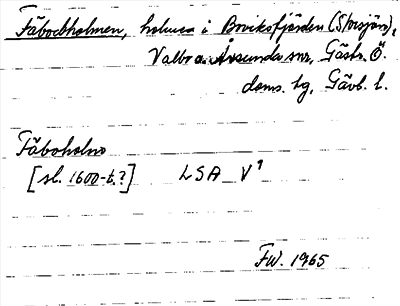 Fäbodholmen, holme i Broviksfjärden (Storsjön),
Valbo o. Årsunda snr, Gästr. Ö.
doms. hg, Gävl. l.
Fäboholm
[sl. 1600-t.?] LSA V¹
FW. 1965